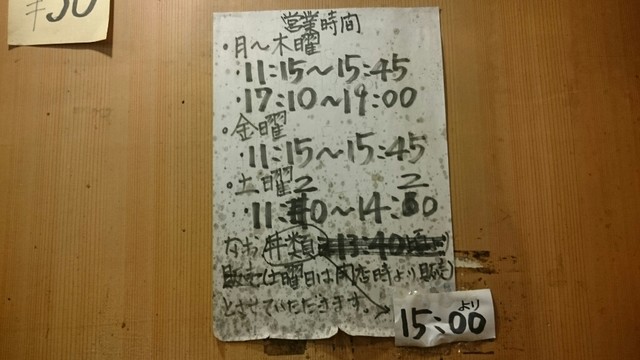 ¥50
営業時間
・月〜木曜
・11:15〜15:45
・17:10〜19:00
・金曜
・11:15〜15:45
・土曜
・11:20〜14:20
なお丼類は13:40頃より
販売(土曜日は開店時より販売)
とさせていただきます。
より
15:00